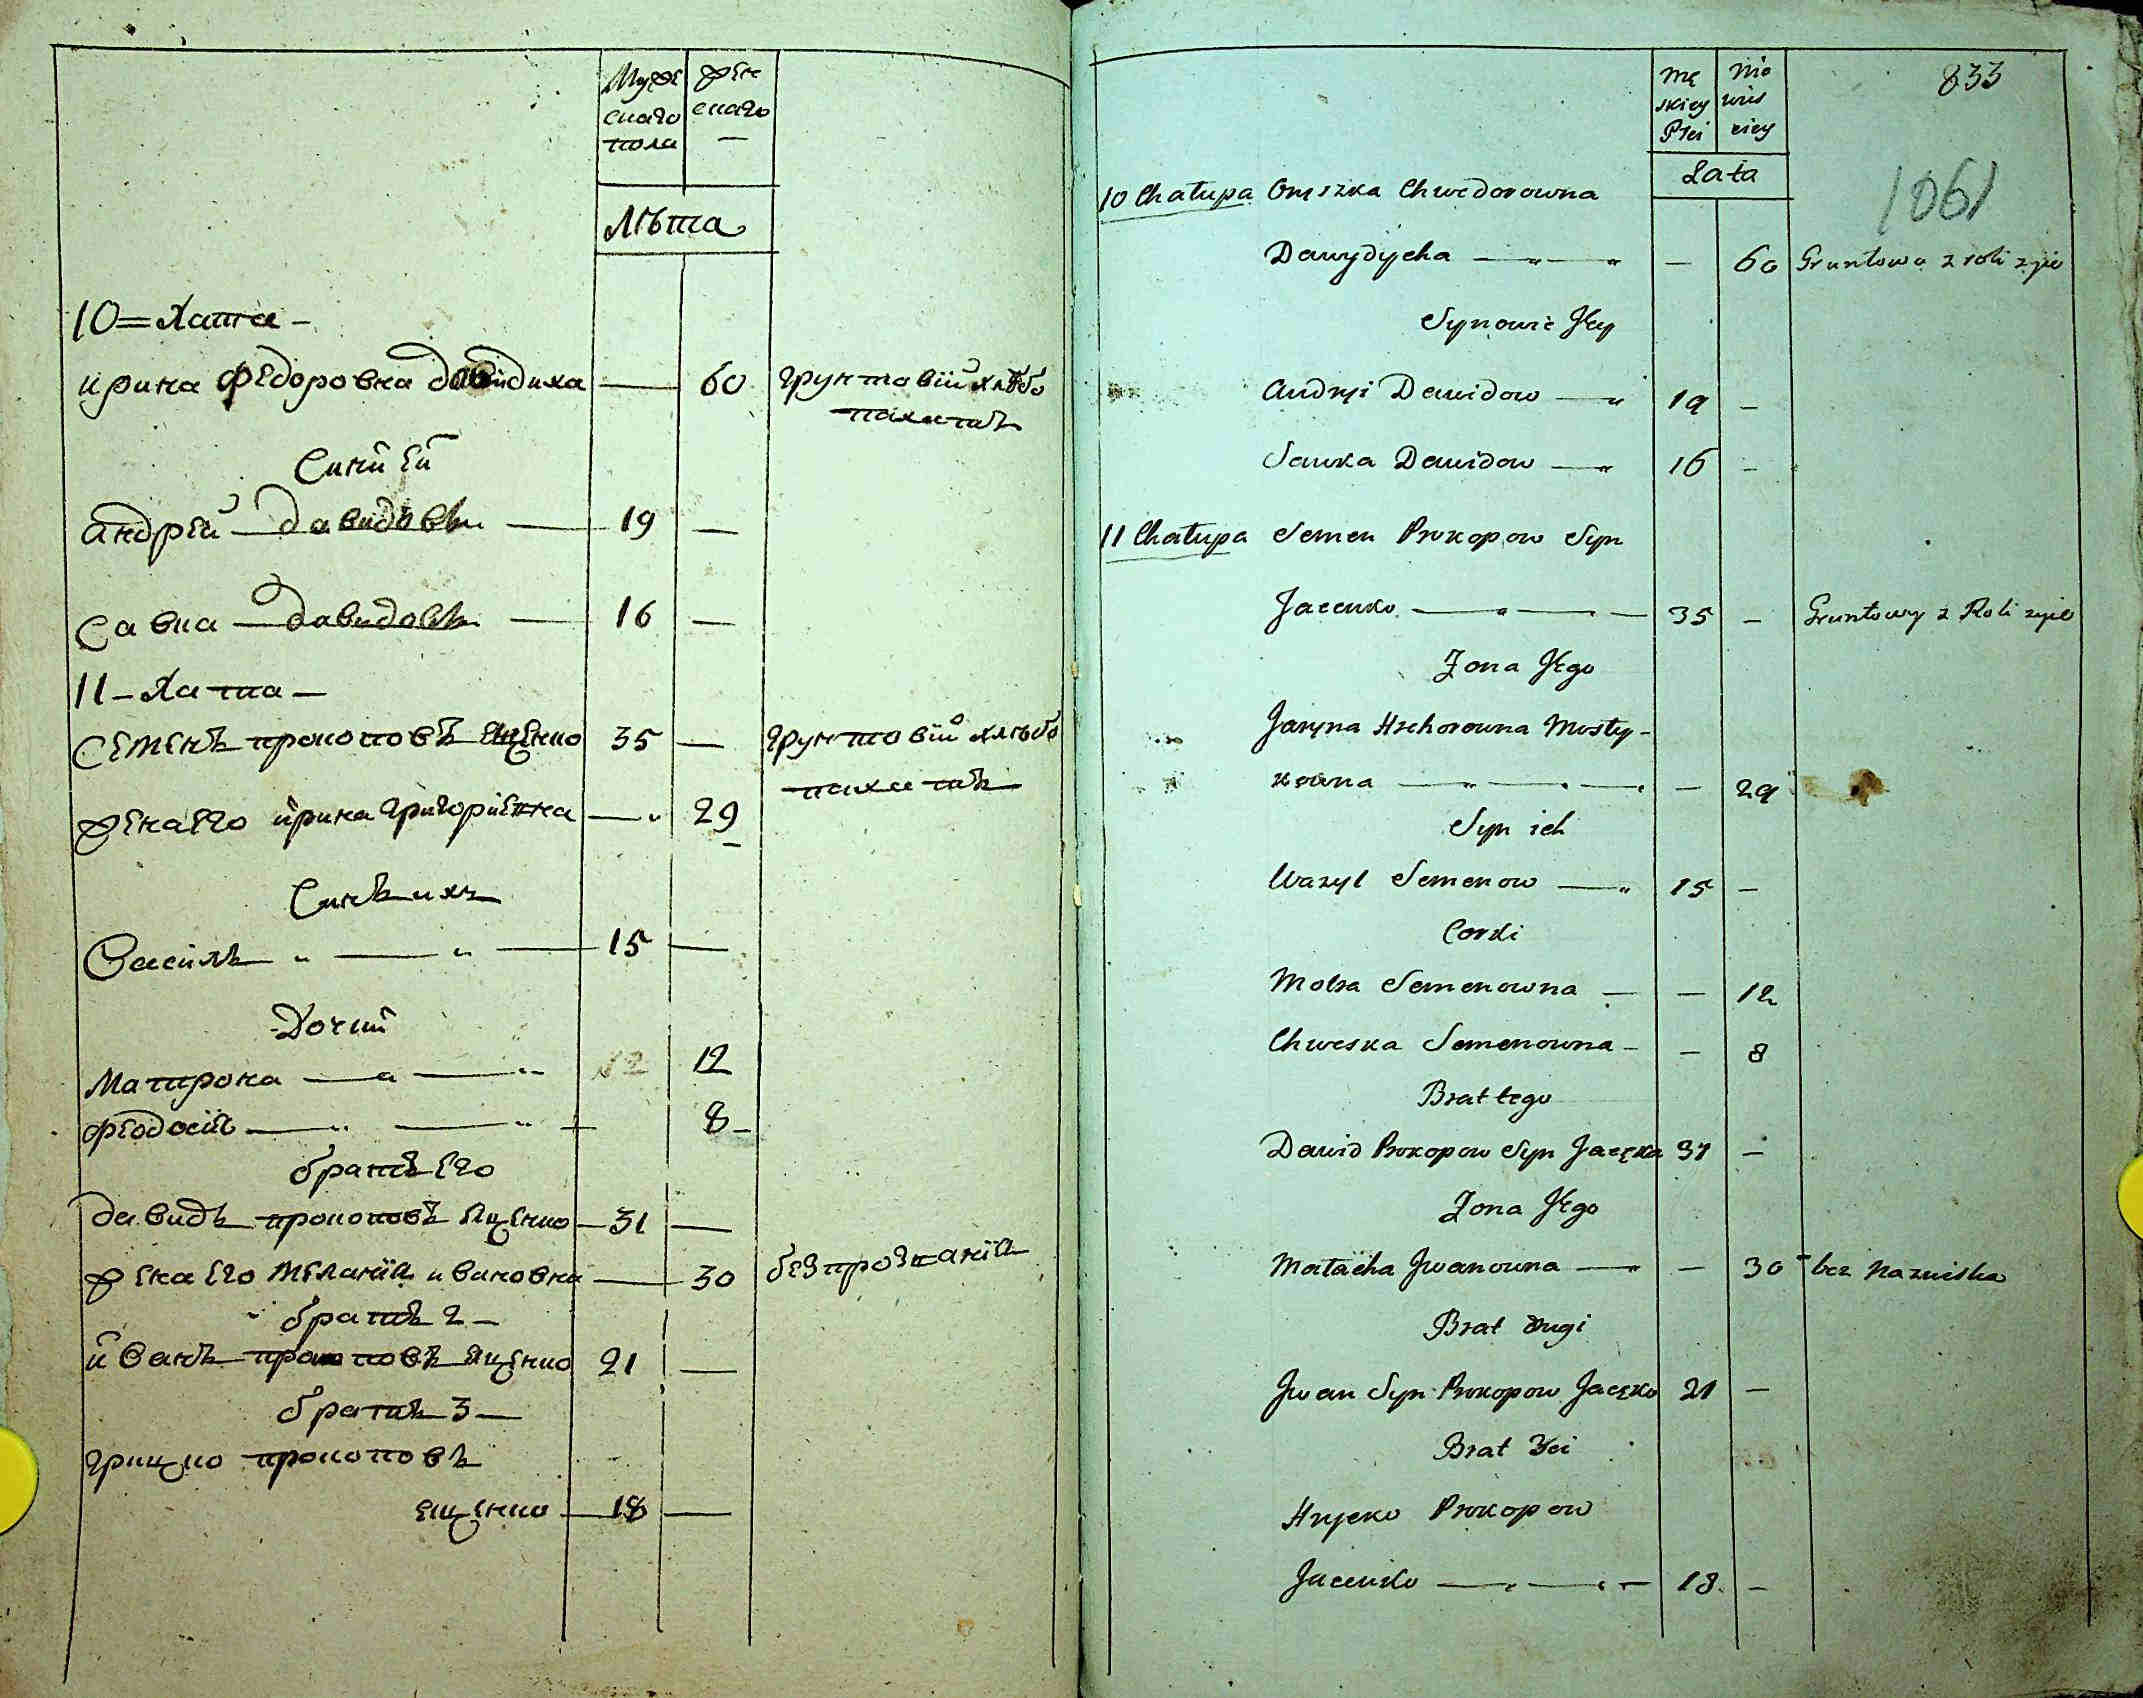 Мужескаго пола
Женскаго —
Лѣта
10 = Хата —
ирина Федоровна давидиха — 60 грунтовій хлѣбо
пахатъ
Синй ей
андрѣй — давидовъ — 19 —
Савка — давидовъ — 16 —
11 — Хата —
Семенъ прокоповъ Ещенко 35 — грунтовій хлѣбо
пахатъ
жена его ирина григориевна — 29
Синъ ихъ
Василь " — " — 15 —
Дочки
Матрона — " — " 12 12
Феодосія — " — " 8 —
братъ его
давидъ прокоповъ Ященко — 31 —
жена его Меланія ивановна — 30 без прозванія
братъ 2 —
иванъ прокоповъ Ященко 21 —
братъ 3 —
грицко прокоповъ
ещенко — 18 —
833
1061
Męskiey Płci
Niewieściey
Lata
10 Chałupa Oryszka Chwedorowna
Dawydycha — " — " — 60 Gruntowa z roli zyie
Synowie Jey
Andryi Dawidow — " 19 —
Sawka Dawidow — " 16 —
11 Chałupa Semen Prokopow Syn
Jacenko — " — 35 — Gruntowy z Roli zyie
Zona Jego
Jaryna Hrehorowna Mosty-
kowna — " — — 29
Syn ich
Wasyl Semenow — " 15 —
Corki
Motra Semenowna — — 12
Chweska Semenowna — — 8
Brat tego
Dawid Prokopow Syn Jacęka 31 —
Zona Jego
Małacha Jwanowna — " — 30 - bez Nazwiska
Brat drugi
Jwan Syn Prokopow Jacęko 21 —
Brat 3ci
Hryćko Prokopow
Jacenko — " — 18 —